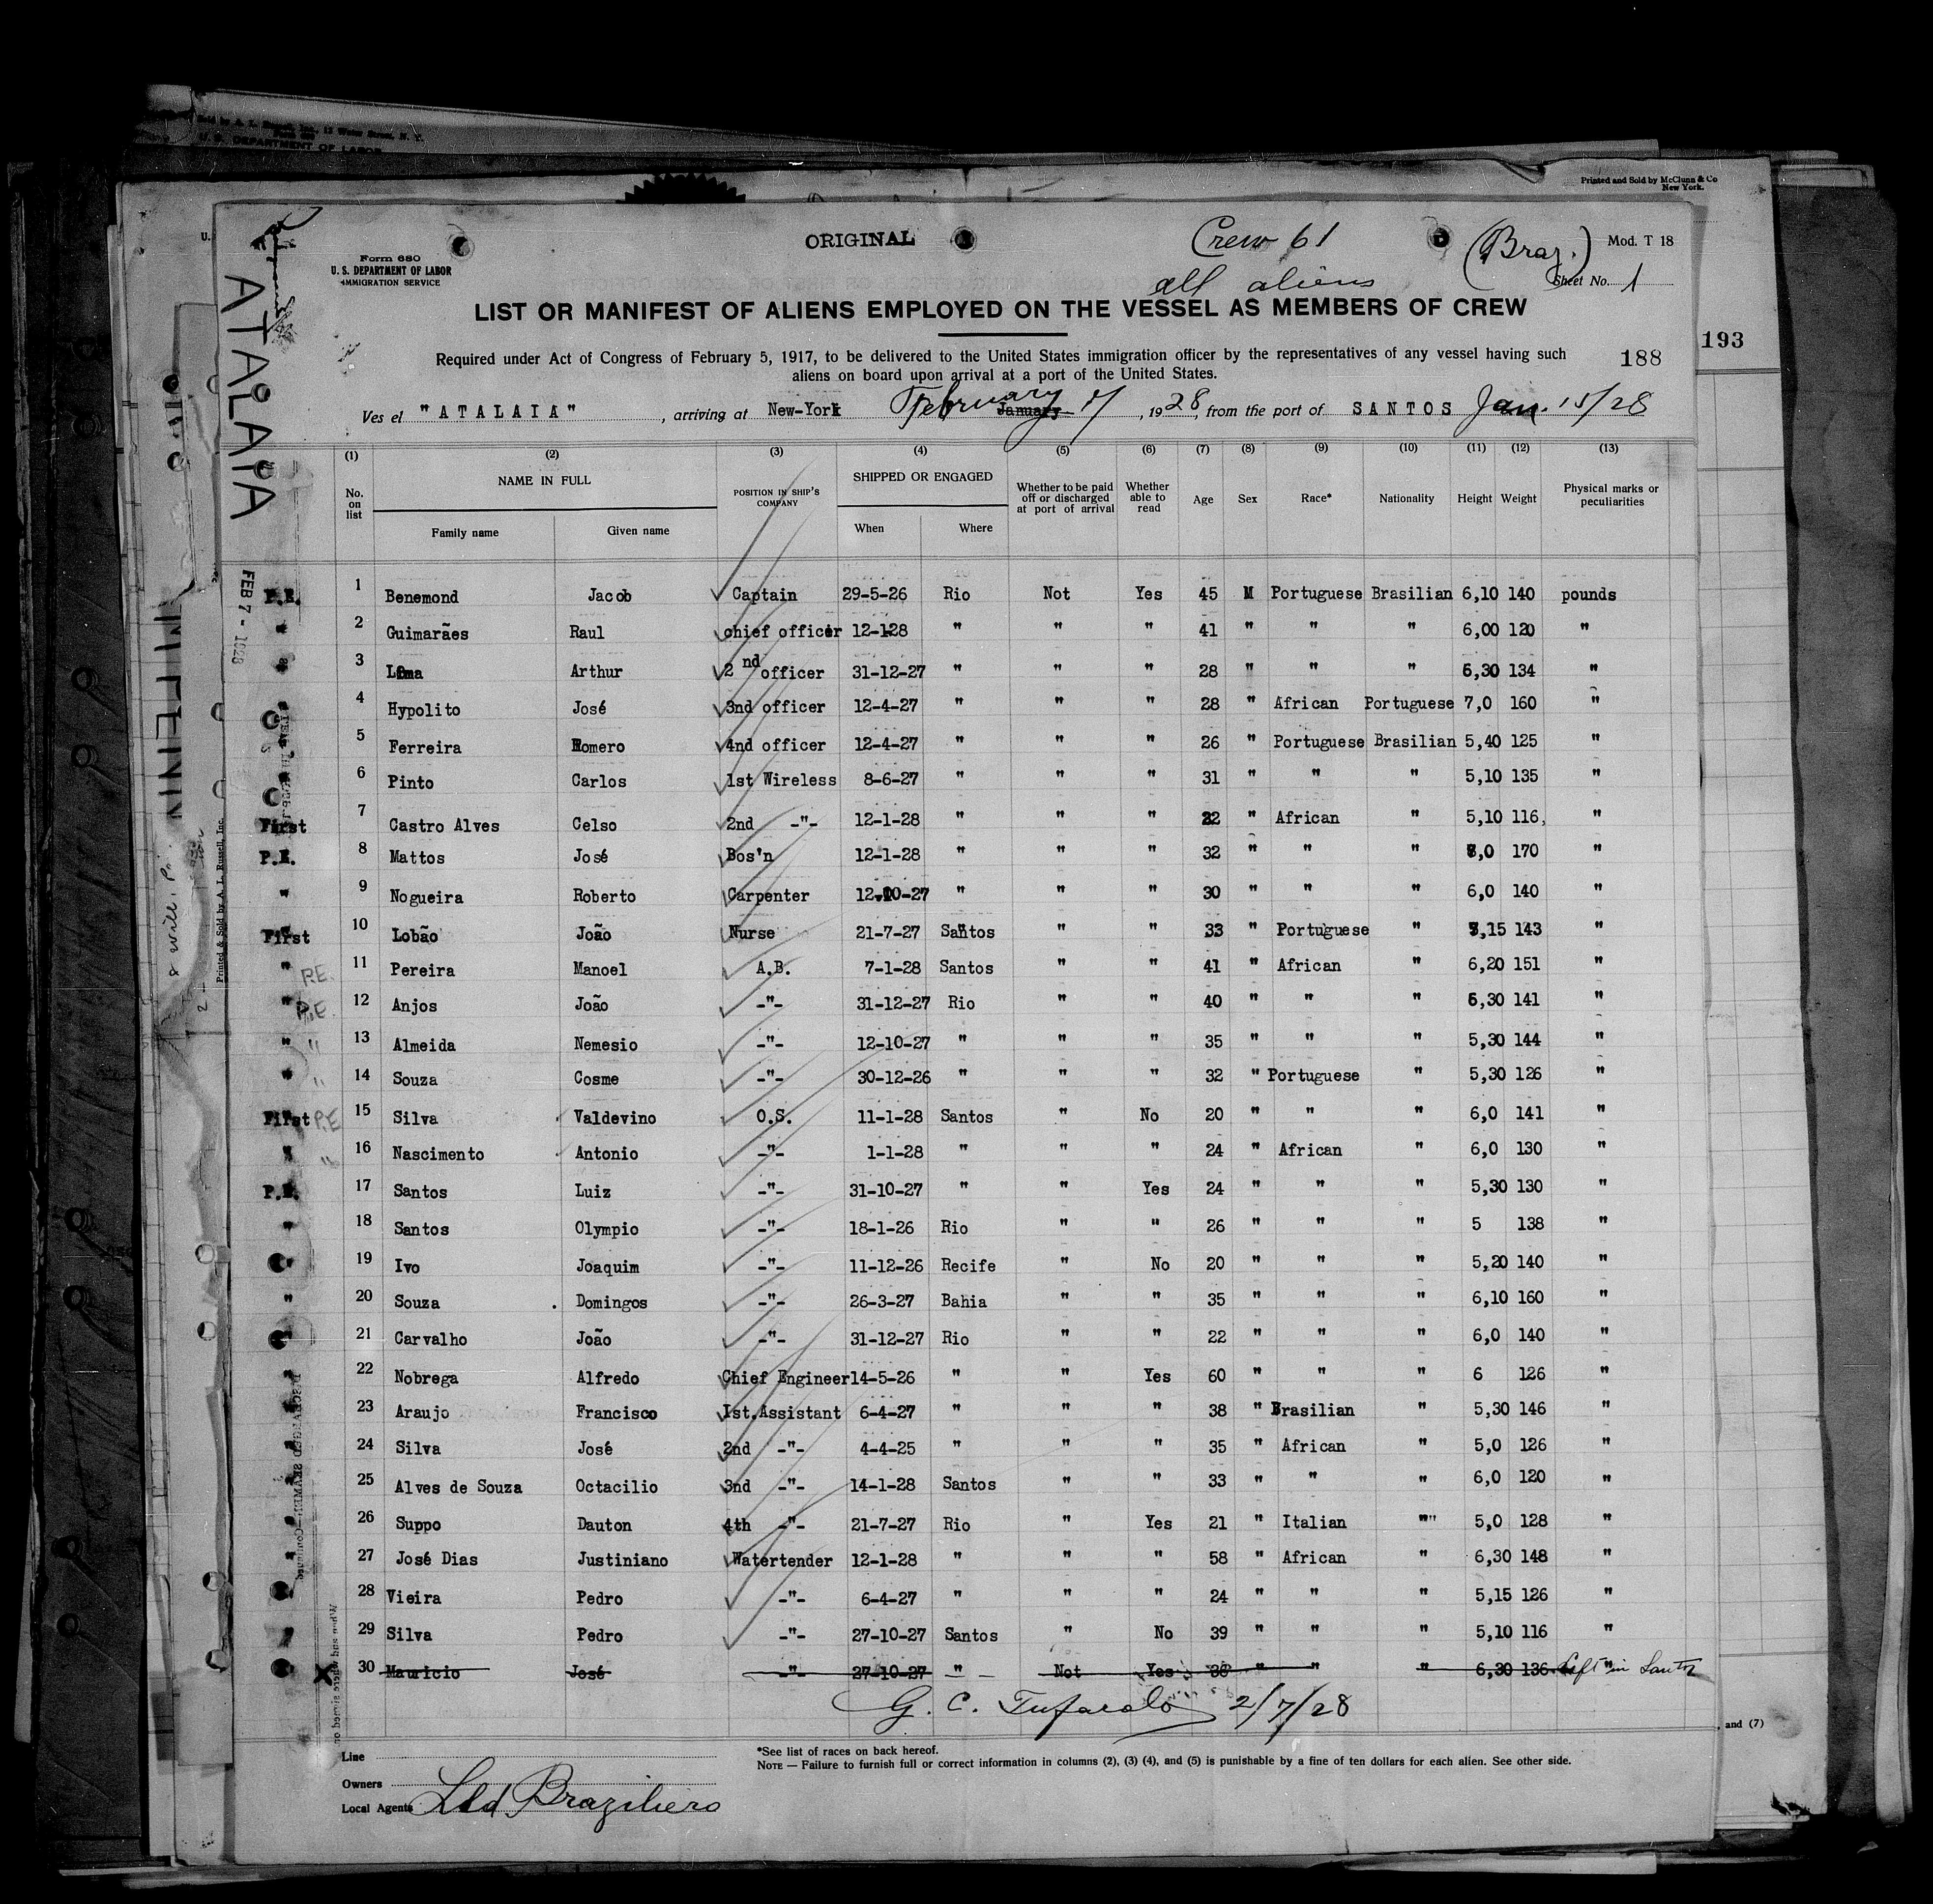 Printed and Sold by McClunn & Co
New York.
Sold by A. L. Russell, Inc., 12 Water Street, N. Y.
U. S. DEPARTMENT OF LABOR
193
ORIGINAL
Crew 61
all aliens
(Braz.)
Mod. T 18
Sheet No. 1
Form 680
U. S. DEPARTMENT OF LABOR
IMMIGRATION SERVICE
ATALAIA
FEB 7 - 1928
LIST OR MANIFEST OF ALIENS EMPLOYED ON THE VESSEL AS MEMBERS OF CREW
Required under Act of Congress of February 5, 1917, to be delivered to the United States immigration officer by the representatives of any vessel having such
aliens on board upon arrival at a port of the United States.
188
Ves el "ATALAIA", arriving at New-York January February 7, 1928, from the port of SANTOS Jan. 15/28
(1) (2) (3) (4) (5) (6) (7) (8) (9) (10) (11) (12) (13)
No. on list NAME IN FULL Family name Given name POSITION IN SHIP'S COMPANY SHIPPED OR ENGAGED When Where Whether to be paid off or discharged at port of arrival Whether able to read Age Sex Race* Nationality Height Weight Physical marks or peculiarities
P.E. 1 Benemond Jacob Captain 29-5-26 Rio Not Yes 45 M Portuguese Brasilian 6,10 140 pounds
" 2 Guimarães Raul chief officer 12-1-28 " " " 41 " " " 6,00 120 "
" 3 Lima Arthur 2nd officer 31-12-27 " " " 28 " " " 6,30 134 "
4 Hypolito José 3nd officer 12-4-27 " " " 28 " African Portuguese 7,0 160 "
5 Ferreira Romero 4nd officer 12-4-27 " " " 26 " Portuguese Brasilian 5,40 125 "
6 Pinto Carlos 1st Wireless 8-6-27 " " " 31 " " " 5,10 135 "
First 7 Castro Alves Celso 2nd -"- 12-1-28 " " " 22 " African " 5,10 116, "
P.E. 8 Mattos José Bos'n 12-1-28 " " " 32 " " " ,0 170 "
" 9 Nogueira Roberto Carpenter 12-10-27 " " " 30 " " " 6,0 140 "
First 10 Lobão João Nurse 21-7-27 Santos " " 33 " Portuguese " ,15 143 "
" P.E. 11 Pereira Manoel A.B. 7-1-28 Santos " " 41 " African " 6,20 151 "
" P.E. 12 Anjos João -"- 31-12-27 Rio " " 40 " " " 6,30 141 "
" " 13 Almeida Nemesio -"- 12-10-27 " " " 35 " " " 5,30 144 "
" " 14 Souza Cosme -"- 30-12-26 " " " 32 " Portuguese " 5,30 126 "
First P.E 15 Silva Valdevino O.S. 11-1-28 Santos " No 20 " " " 6,0 141 "
" " 16 Nascimento Antonio -"- 1-1-28 " " " 24 " African " 6,0 130 "
P.E. 17 Santos Luiz -"- 31-10-27 " " Yes 24 " " " 5,30 130 "
" 18 Santos Olympio -"- 18-1-26 Rio " " 26 " " " 5 138 "
19 Ivo Joaquim -"- 11-12-26 Recife " No 20 " " " 5,20 140 "
" 20 Souza Domingos -"- 26-3-27 Bahia " " 35 " " " 6,10 160 "
" 21 Carvalho João -"- 31-12-27 Rio " " 22 " " " 6,0 140 "
" 22 Nobrega Alfredo Chief Engineer 14-5-26 " " Yes 60 " " " 6 126 "
" 23 Araujo Francisco 1st.Assistant 6-4-27 " " " 38 " Brasilian " 5,30 146 "
" 24 Silva José 2nd -"- 4-4-25 " " " 35 " African " 5,0 126 "
" 25 Alves de Souza Octacilio 3nd -"- 14-1-28 Santos " " 33 " " " 6,0 120 "
" 26 Suppo Dauton 4th -"- 21-7-27 Rio " Yes 21 " Italian "" 5,0 128 "
" 27 José Dias Justiniano Watertender 12-1-28 " " " 58 " African " 6,30 148 "
28 Vieira Pedro -"- 6-4-27 " " " 24 " " " 5,15 126 "
" 29 Silva Pedro -"- 27-10-27 Santos " No 39 " " " 5,10 116 "
X 30 Mauricio José -"- 27-10-27 " Not Yes 38 " " " 6,30 136 Left in Santos
G. C. Tufarolo 2/7/28
, and (7)
Line
Owners
Local Agents Lld Braziliero
*See list of races on back hereof.
NOTE — Failure to furnish full or correct information in columns (2), (3) (4), and (5) is punishable by a fine of ten dollars for each alien. See other side.
Printed & Sold by A. L. Russell, Inc.